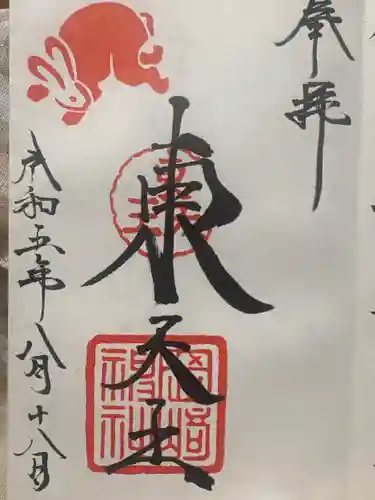 奉拝
東天王
岡﨑神社
令和五年八月十八日